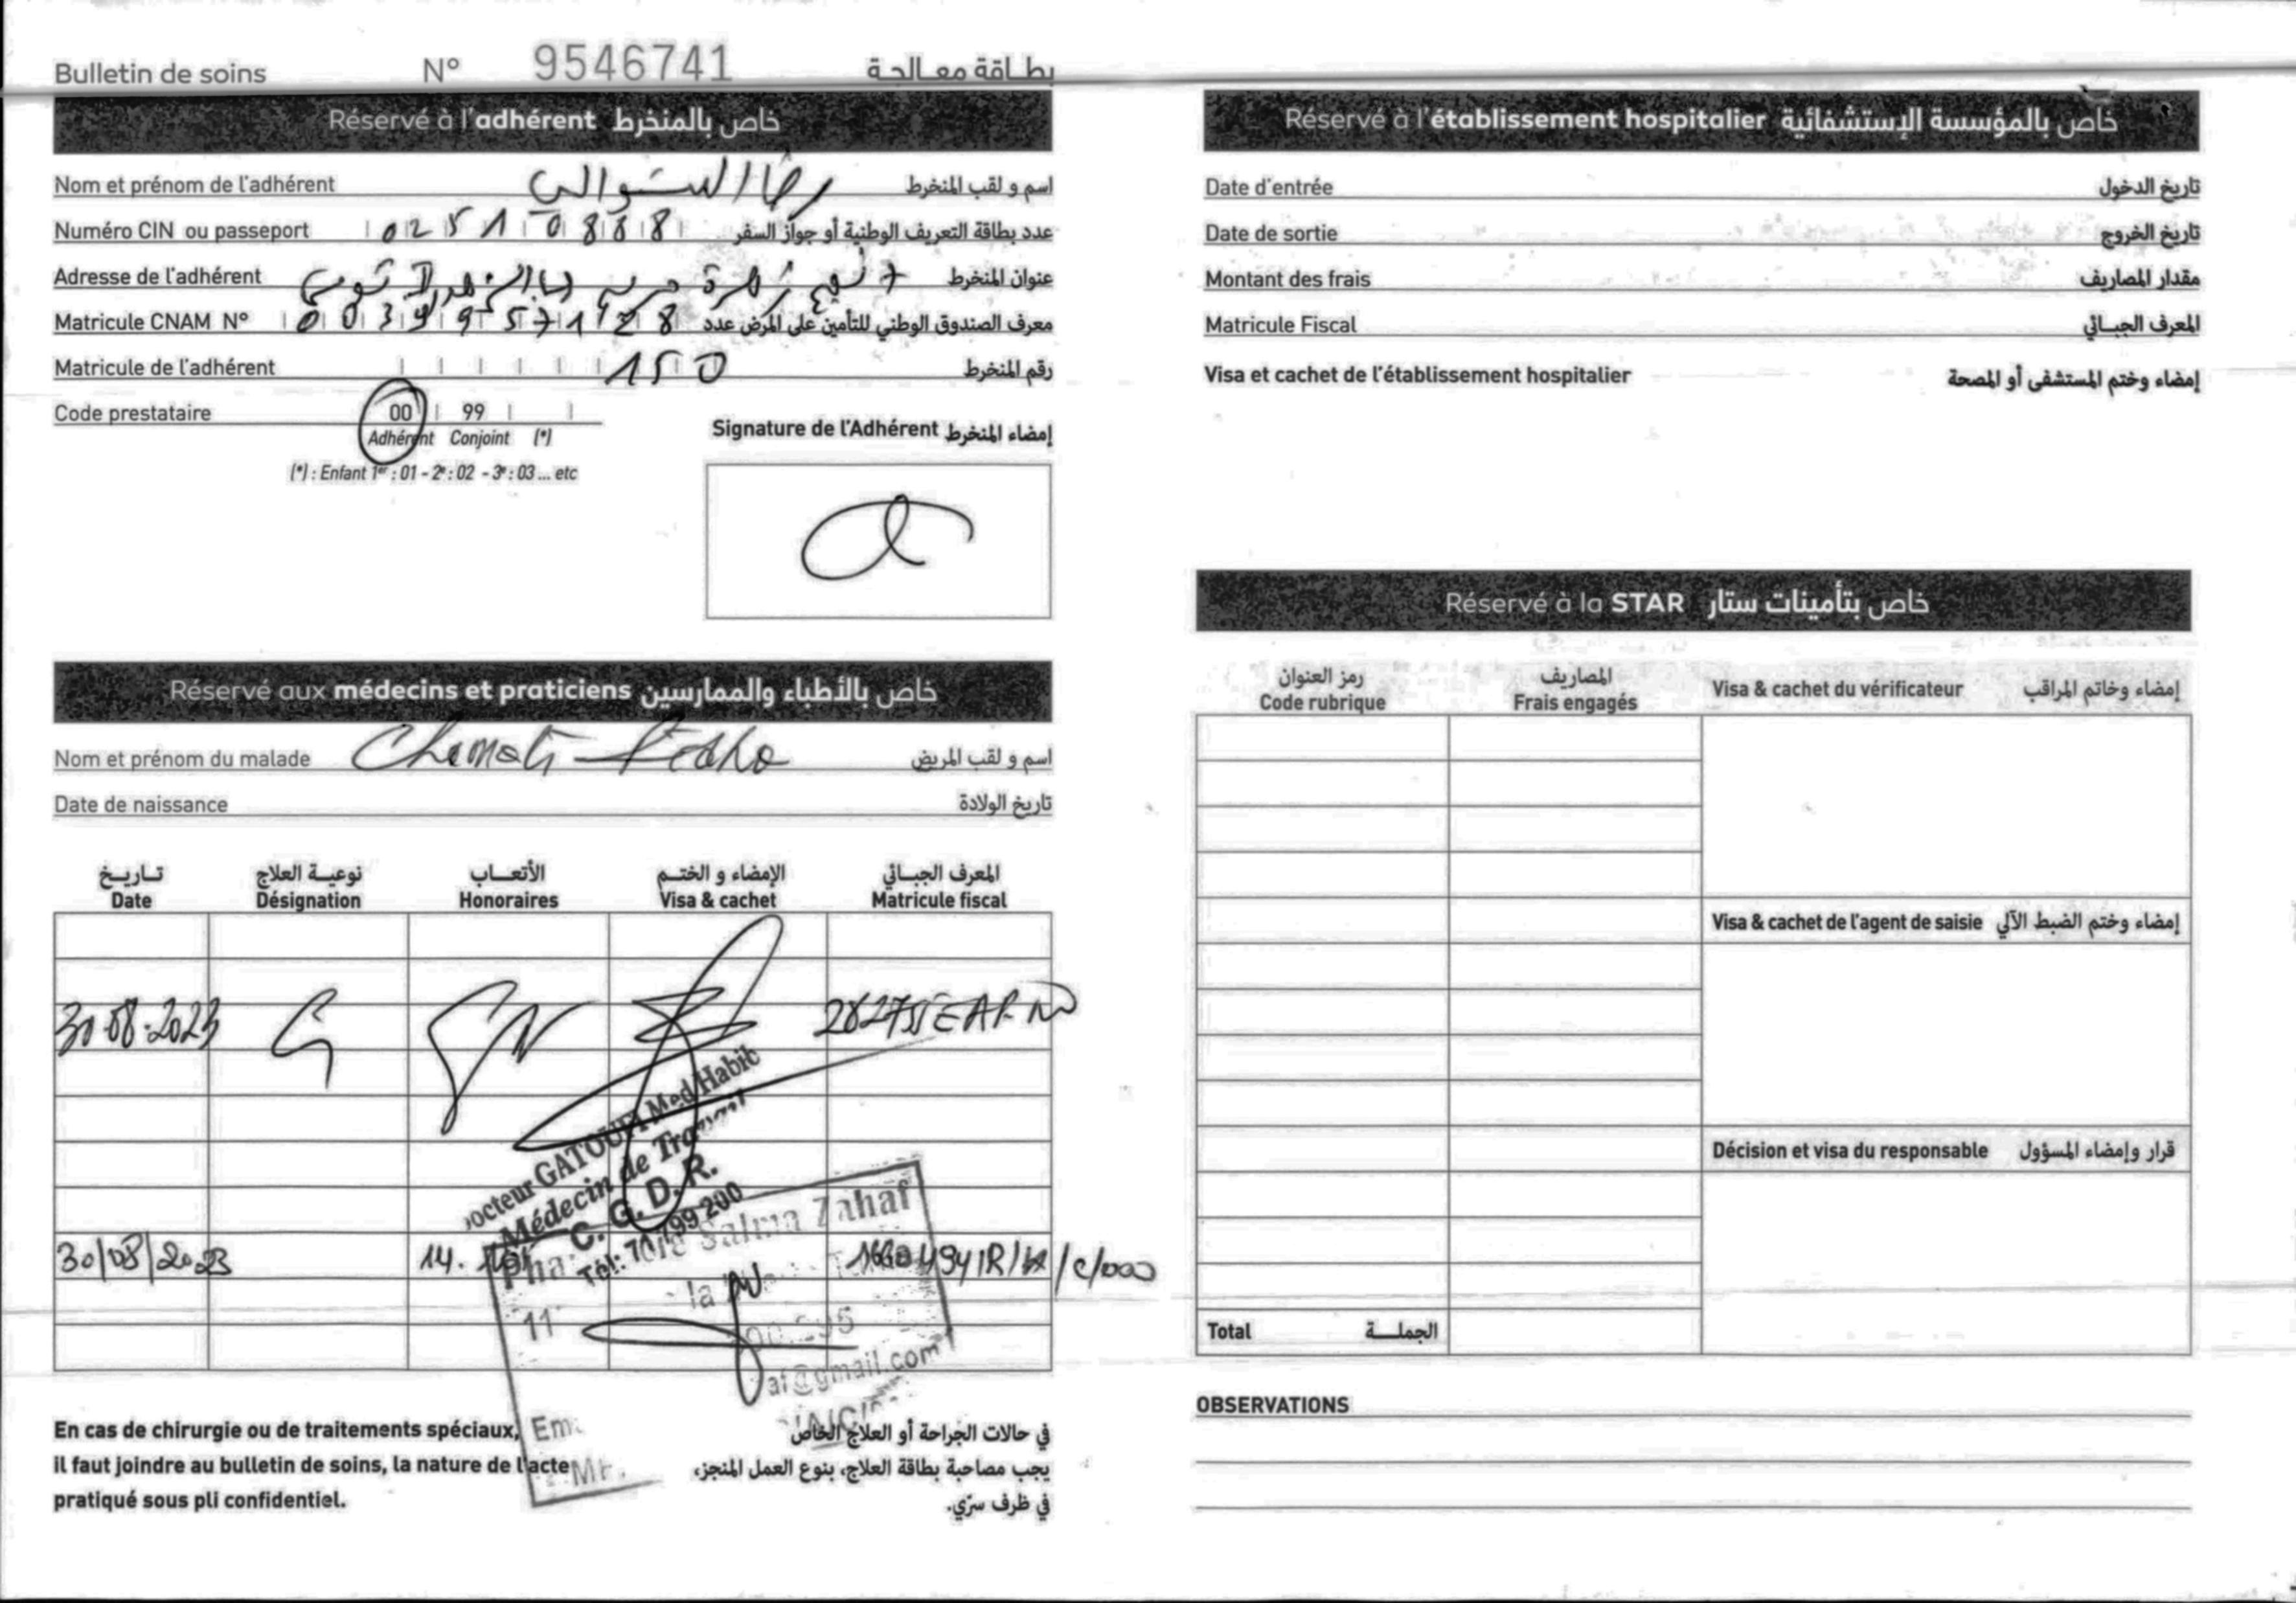 Bulletin de soins N° 9546741 بطاقة معالجة
Réservé à l'adhérent خاص بالمنخرط
Nom et prénom de l'adhérent رضا اسم و لقب المنخرط
Numéro CIN ou passeport 02510888 عدد بطاقة التعريف الوطنية أو جواز السفر
Adresse de l'adhérent عنوان المنخرط
Matricule CNAM N° معرف الصندوق الوطني للتأمين على المرض عدد
Matricule de l'adhérent 150 رقم المنخرط
Code prestataire 00 99
Adhérent Conjoint (*)
(*) : Enfant 1er : 01 - 2e : 02 - 3e : 03 ... etc
Signature de l'Adhérent إمضاء المنخرط
Réservé aux médecins et praticiens خاص بالأطباء والممارسين
Nom et prénom du malade اسم و لقب المريض
Date de naissance تاريخ الولادة
تاريخ نوعية العلاج الأتعاب الإمضاء و الختم المعرف الجبائي
Date Désignation Honoraires Visa & cachet Matricule fiscal
30-08-2023
Docteur GATOUFI Med Habib
Médecin de Travail
C. G. D. R.
Tél: 71 799 200
Salma Zahaf
30/08/2023 14.
la
11
af@gmail.com
En cas de chirurgie ou de traitements spéciaux,
il faut joindre au bulletin de soins, la nature de l'acte
pratiqué sous pli confidentiel.
في حالات الجراحة أو العلاج الخاص
يجب مصاحبة بطاقة العلاج، بنوع العمل المنجز،
في ظرف سرّي.
Réservé à l'établissement hospitalier خاص بالمؤسسة الإستشفائية
Date d'entrée تاريخ الدخول
Date de sortie تاريخ الخروج
Montant des frais مقدار المصاريف
Matricule Fiscal المعرف الجبائي
Visa et cachet de l'établissement hospitalier إمضاء وختم المستشفى أو المصحة
Réservé à la STAR خاص بتأمينات ستار
رمز العنوان المصاريف
Code rubrique Frais engagés Visa & cachet du vérificateur إمضاء وخاتم المراقب
Visa & cachet de l'agent de saisie إمضاء وختم الضبط الآلي
Décision et visa du responsable قرار وإمضاء المسؤول
Total الجملة
OBSERVATIONS